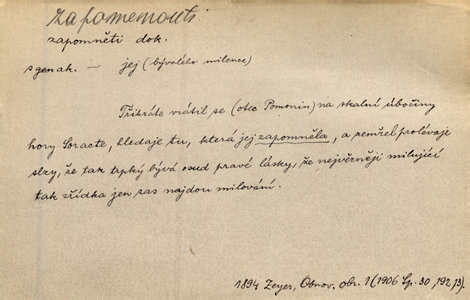 zapomenouti
zapomněti dok.
s genak. — jej (bývalého milence)
Třikráte vrátil se (otec Pomonin) na skalní úbočiny
hory Soracte, hledaje tu, která jej zapomněla, a zemřel prolévaje
slzy, že tak trpký bývá osud pravé lásky, že nejvěrněji milující
tak zřídka jen zas najdou milování.
1894 Zeyer, Obnov. obr. 1 (1906 Sp. 30, 192,13).